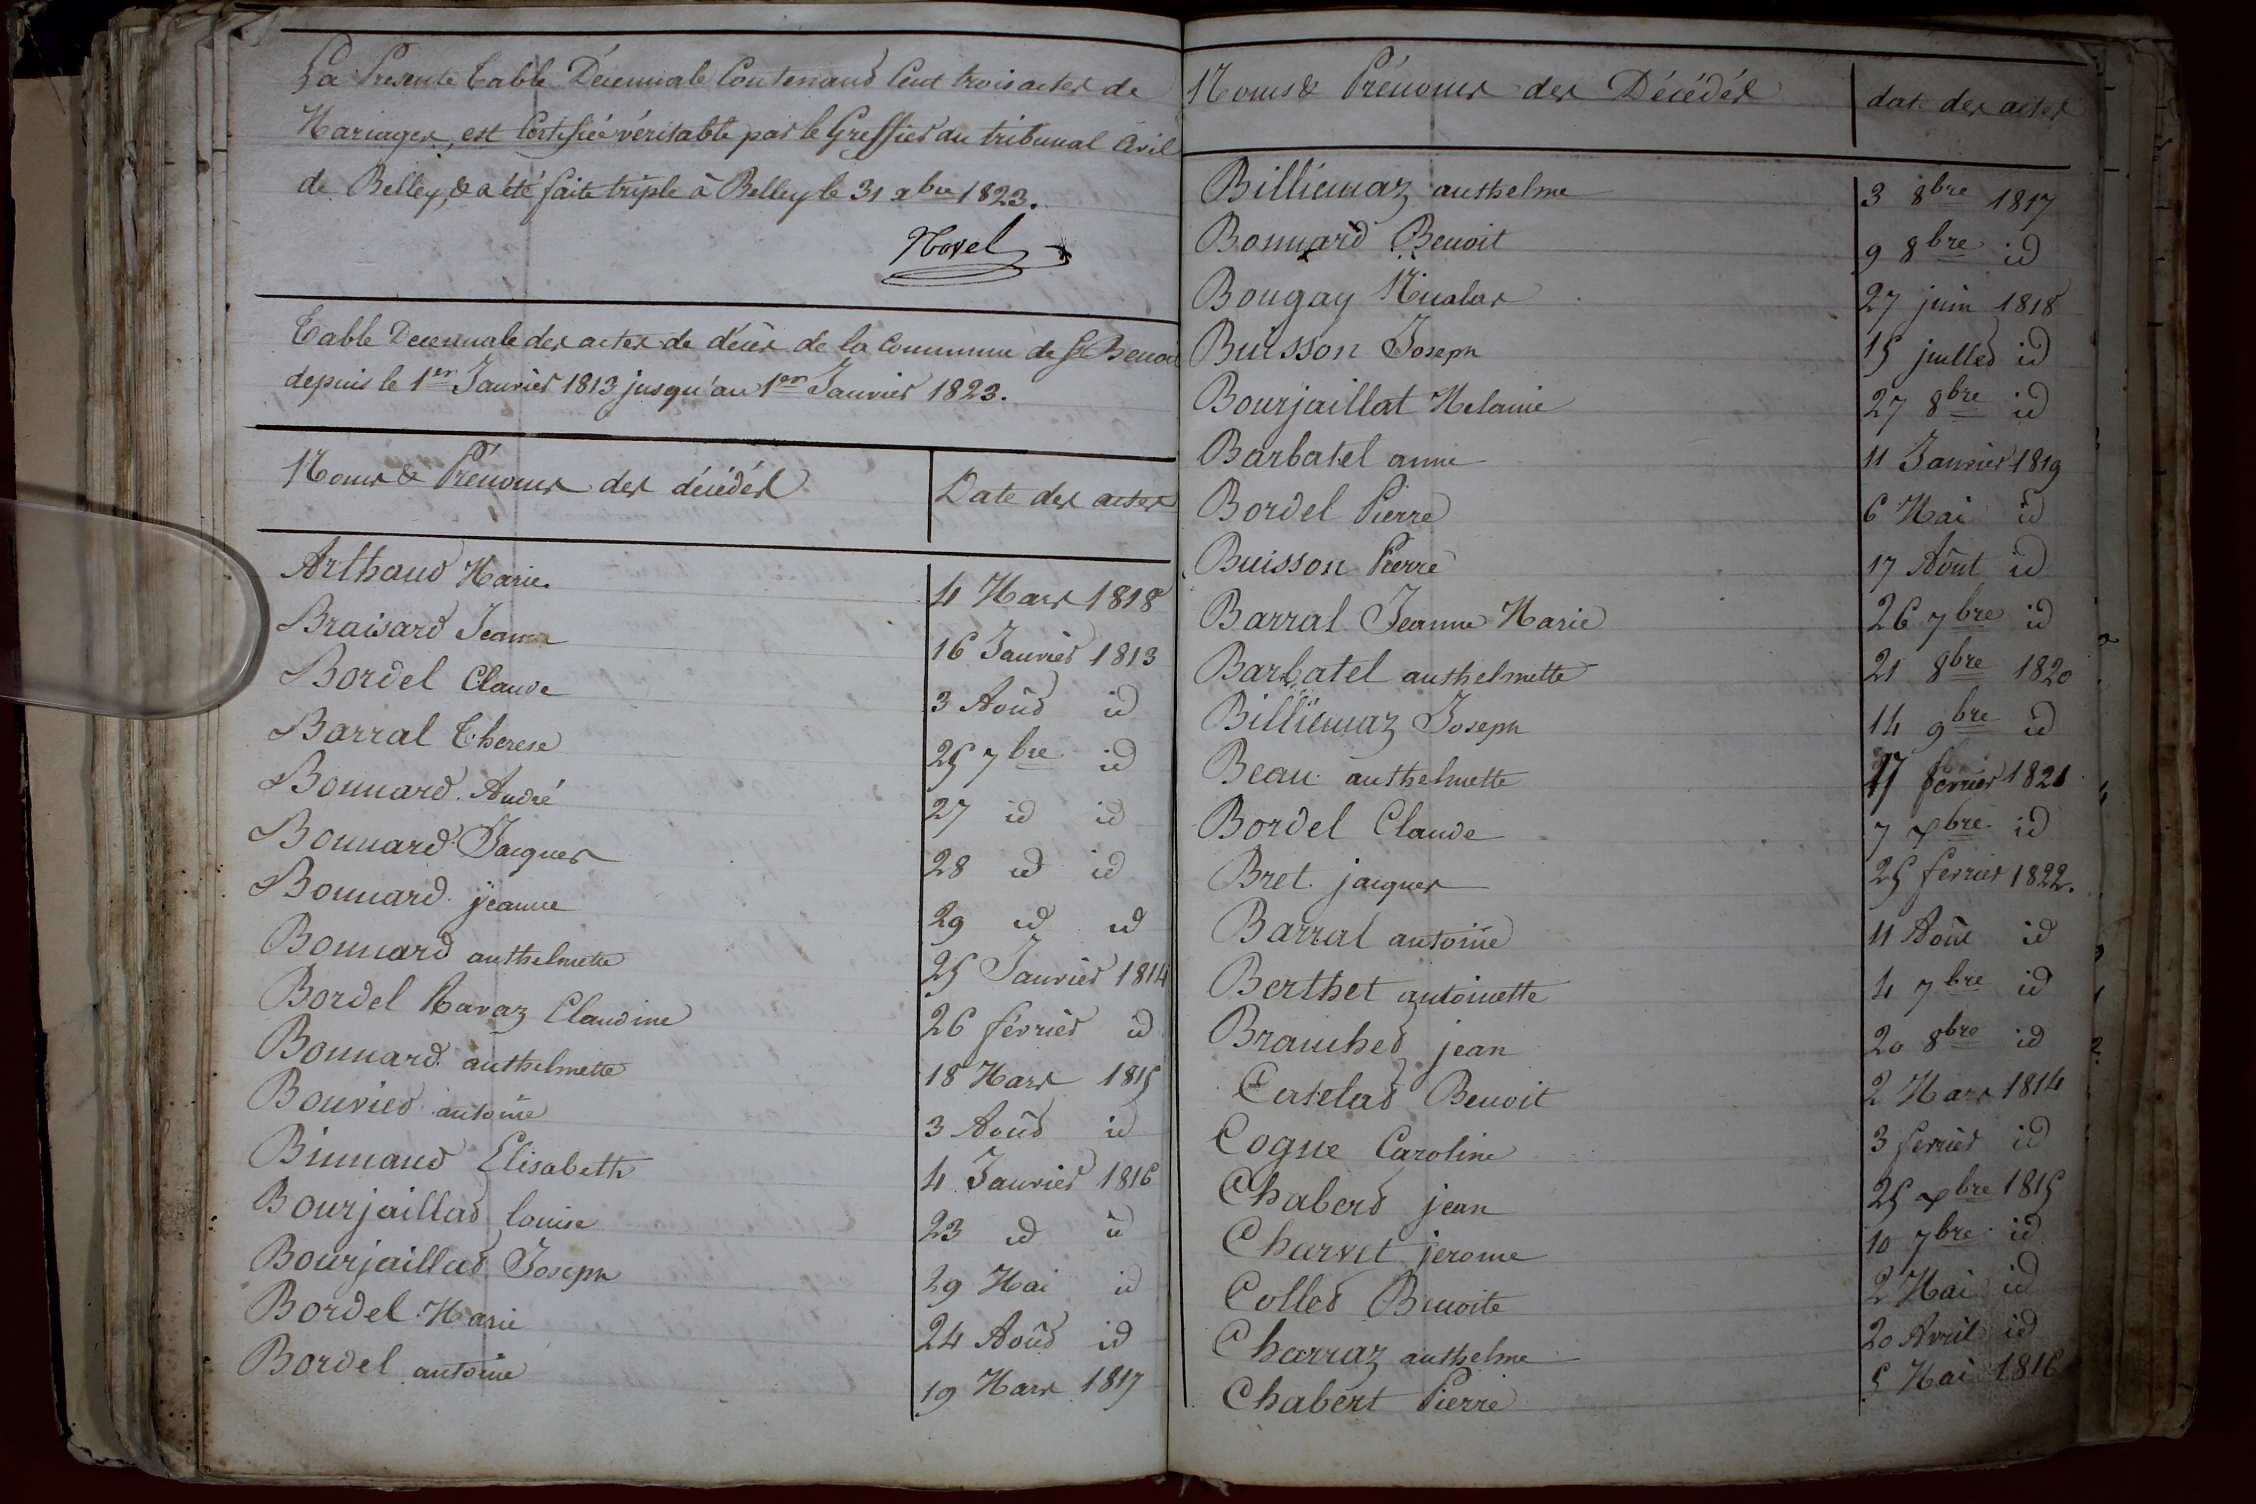 La Presente Table Décennale Contenand Cent trois actes de
Mariages, est Certifiée véritable par le Greffier du tribunal Civil
de Belley, & a été faite triple à Belley le 31 xbre 1823.
Novel
Table Decennale des actes de décès de la Commune de St Benoit
depuis le 1er Janvier 1813 jusqu'au 1er Janvier 1823.
Noms & Prénoms des décédés Date des actes
Arthaud Marie 4 Mars 1818
Braisard Jeanne 16 Janvier 1813
Bordel Claude 3 Aoûd id
Barral Therese 25 7bre id
Bonnard André 27 id id
Bonnard Jacques 28 id id
Bonnard jeanne 29 id id
Bonnard anthelmette 25 Janvier 1814
Bordel Ravaz Claudine 26 février id
Bonnard anthelmette 18 Mars 1815
Bouvier antoine 3 Aoûd id
Binnand Elisabeth 4 Janvier 1816
Bourjaillad louise 23 id id
Bourjaillad Joseph 29 Mai id
Bordel Marie 24 Aoûd id
Bordel antoine 19 Mars 1817
Noms & Prénoms des Décédés date des actes
Billiemaz anthelme 3 8bre 1817
Bonnard Benoit 9 8bre id
Bougay Nicolas 27 juin 1818
Buisson Joseph 15 juilled id
Bourjaillat Melanie 27 8bre id
Barbatel anne 11 Janvier 1819
Bordel Pierre 6 Mai id
Buisson Pierre 17 Aôut id
Barral Jeanne Marie 26 7bre id
Barbatel anthelmette 21 8bre 1820
Billiemaz Joseph 14 9bre id
Beau anthelmette 17 fevrier 1821
Bordel Claude 7 xbre id
Bret jacques 25 fevrier 1822.
Barral antoine 11 Aôut id
Berthet antoinette 4 7bre id
Branched jean 20 8bre id
Catelad Benoit 2 Mars 1814
Cogne Caroline 3 fevrier id
Chaberd jean 25 xbre 1815
Charvet jerome 10 7bre id
Colled Benoite 2 Mai id
Charraz anthelme 20 Avril id
Chabert Pierre 5 Mai 1816